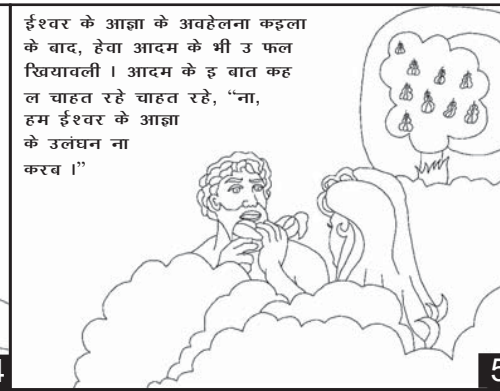 ईश्वर के आज्ञा के अवहेलना कइला
के बाद, हेवा आदम के भी उ फल
खियावली । आदम के इ बात कह
ल चाहत रहे चाहत रहे, “ना,
हम ईश्वर के आज्ञा
के उलंघन ना
करब ।”
4
5